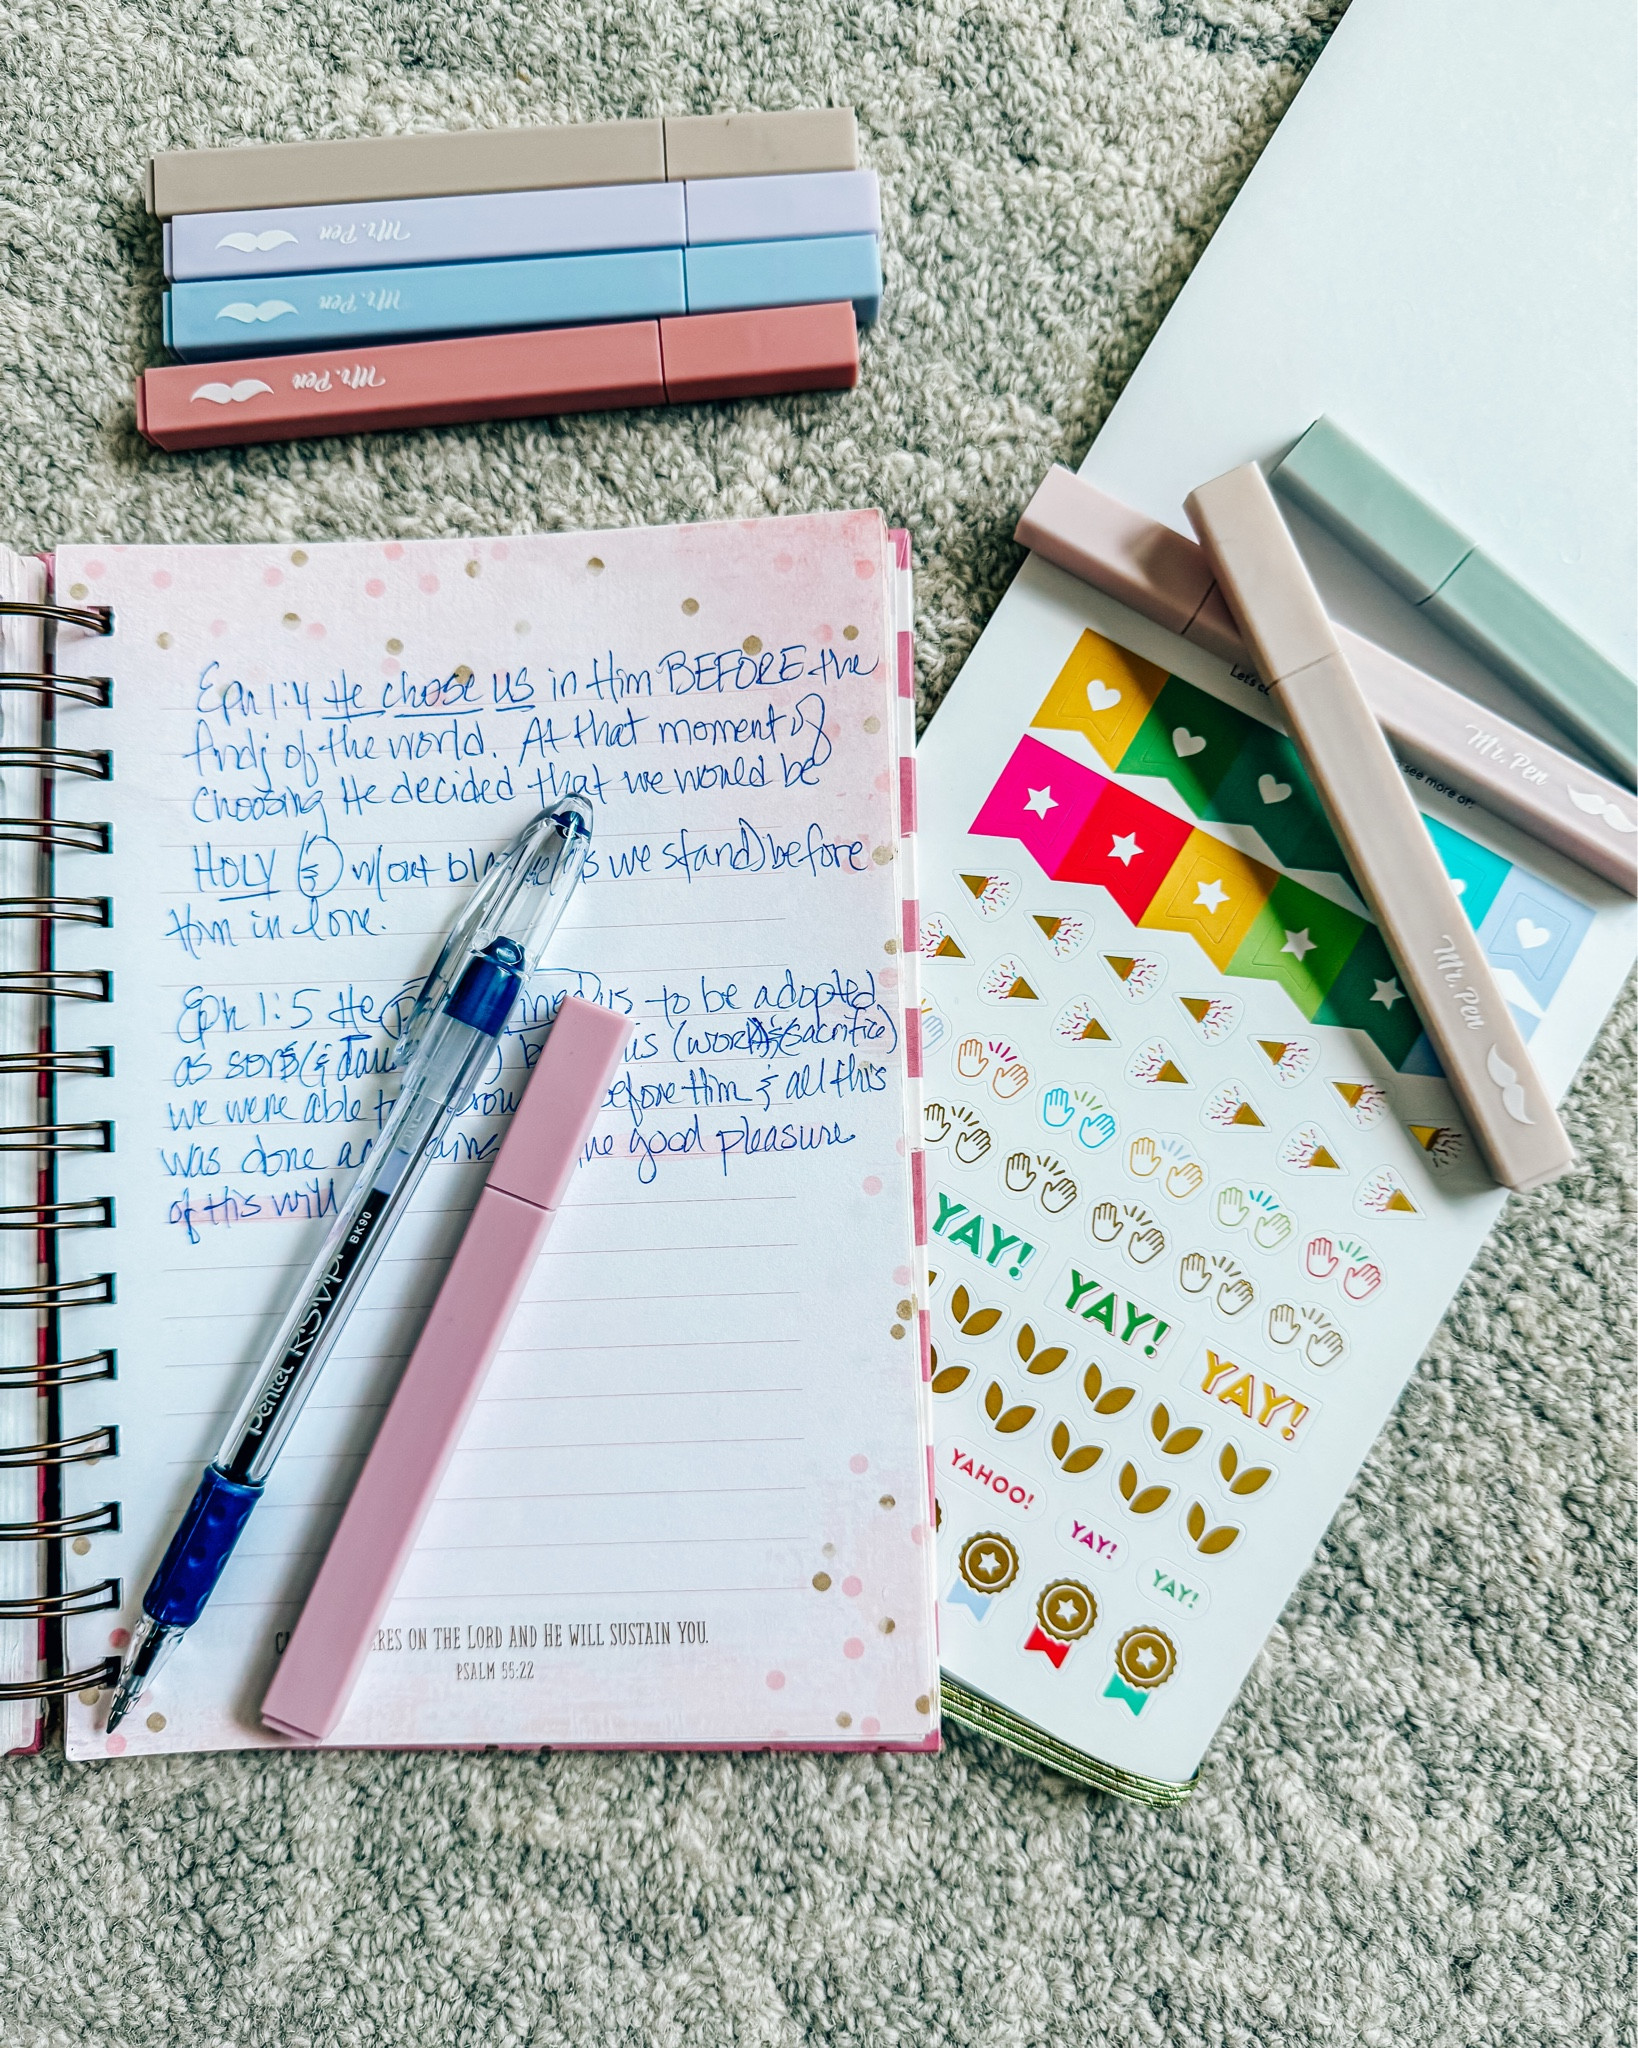 Mr. Pen
Mr. Pen
Mr. Pen
Eph 1:4 He chose us in Him BEFORE the
fndj of the world. At that moment of
choosing He decided that we would be
HOLY & w/out we stand) before
Him in love.
Eph 1:5 He us to be adopted
as sons (& (work & sacrifice)
we were able before Him & all this
was done good pleasure
of His will
Pentel R.S.V.P. BK90
ARES ON THE LORD AND HE WILL SUSTAIN YOU.
PSALM 55:22
Let's
see more of:
Mr. Pen
Mr. Pen
YAY!
YAY!
YAY!
YAHOO!
YAY!
YAY!